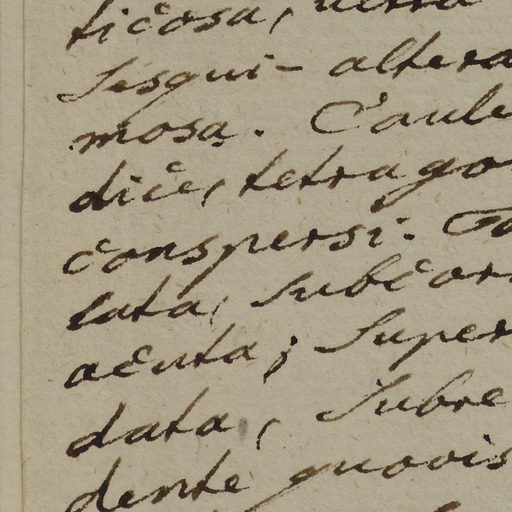 ticosa,
Sesqui-altera
mosa. Caule
dice, tetrago
conspersi.
lata, subcor
acuta; super
data, subre
dente quovis